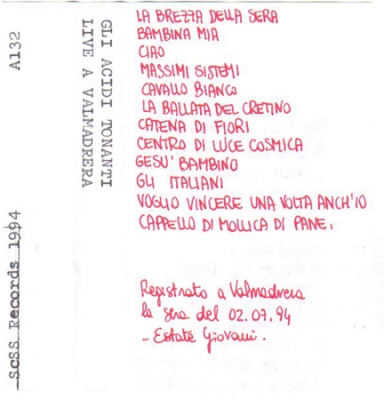 A132
SCSS Records 1994
GLI ACIDI TONANTI
LIVE A VALMADRERA
LA BREZZA DELLA SERA
BAMBINA MIA
CIAO
MASSIMI SISTEMI
CAVALLO BIANCO
LA BALLATA DEL CRETINO
CATENA DI FIORI
CENTRO DI LUCE COSMICA
GESU' BAMBINO
GLI ITALIANI
VOGLIO VINCERE UNA VOLTA ANCH'IO
CAPPELLO DI MOLLICA DI PANE.
Registrato a Valmadrera
la sera del 02.07.94
- Estate Giovani.